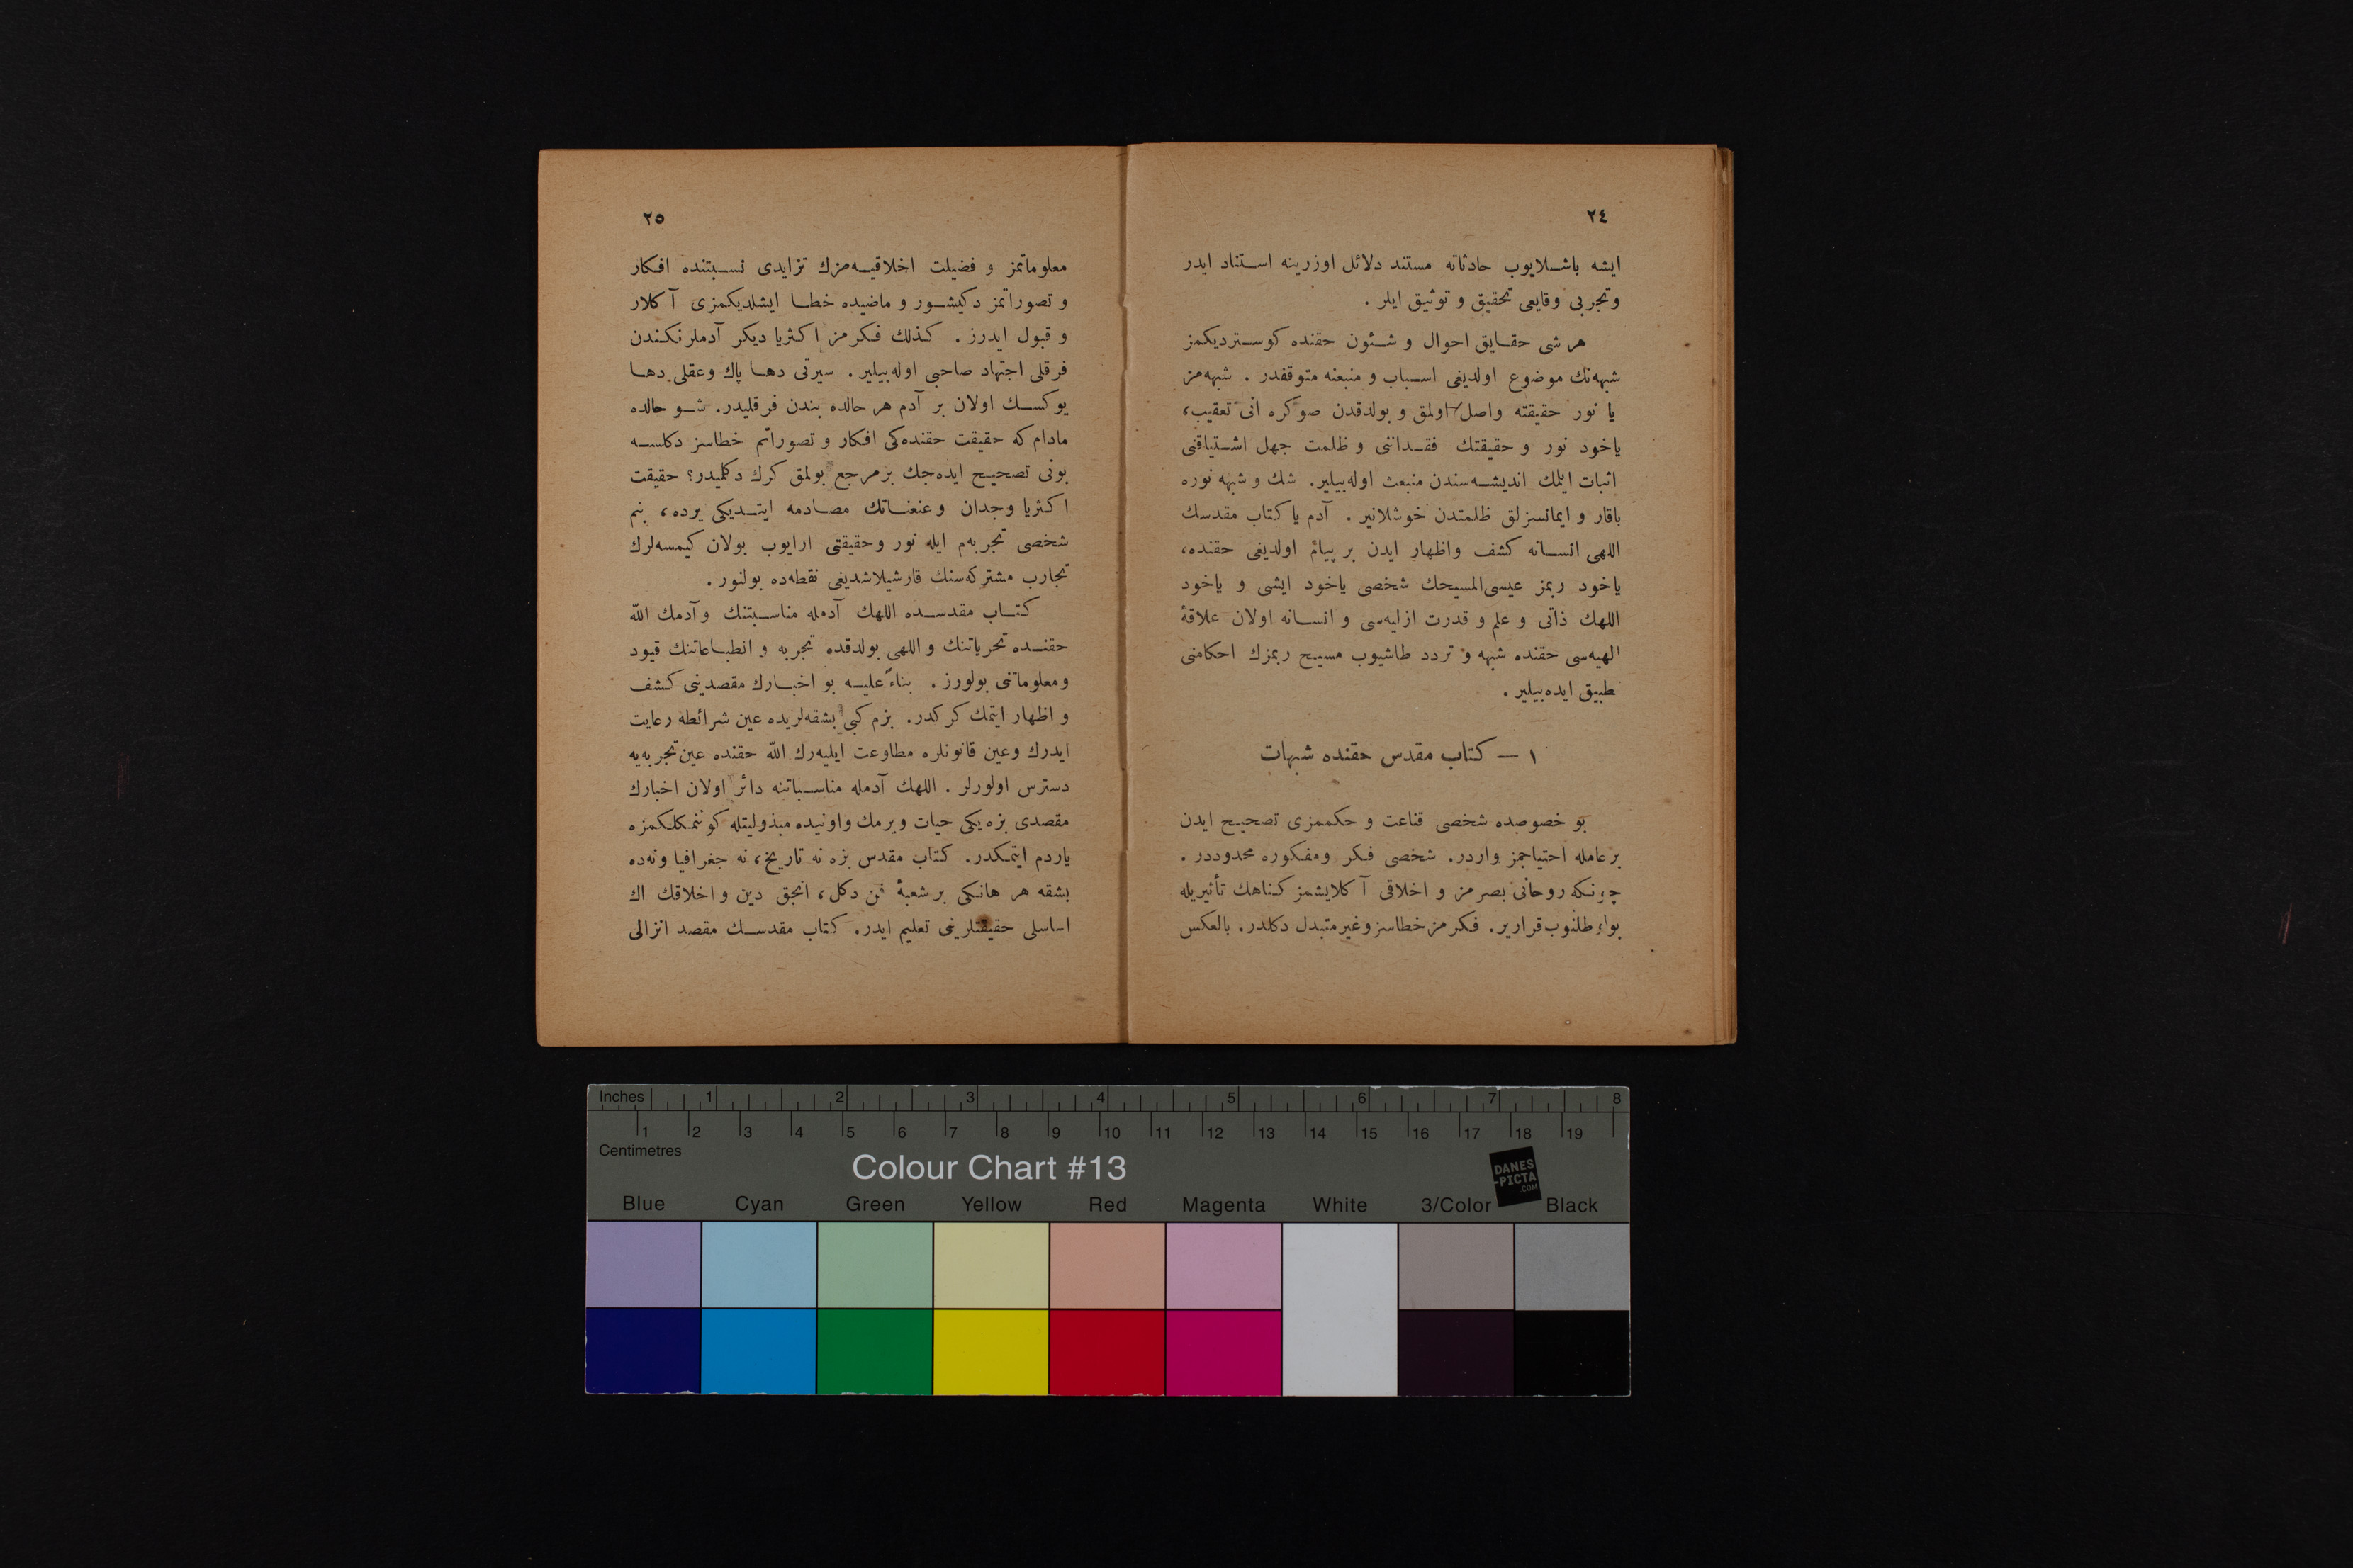 ٢٤
ايشه باشلايوب حادثاته مستند دلائل اوزرينه استناد ايدر
وتجربی وقايعی تحقيق و توثيق ايلر .
هر شی حقايق احوال و شئون حقنده كوسترديكمز
شبهه‌نك موضوع اولديغی اسباب و منبعنه متوقفدر . شبهه‌مز
يا نور حقيقته واصل اولمق و بولدقدن صوكره انی تعقيب،
ياخود نور و حقيقتك فقداننی و ظلمت جهل اشتياقنی
اثبات ايلمك انديشه‌سندن منبعث اوله‌بيلير. شك و شبهه نوره
باقار و ايمانسزلق ظلمتدن خوشلانير . آدم يا كتاب مقدسك
اللهی انسانه كشف واظهار ايدن بر پيام اولديغی حقنده،
ياخود ربمز عيسی‌المسيحك شخصی ياخود ايشی و ياخود
اللهك ذاتی و علم و قدرت ازليه‌سی و انسانه اولان علاقهٔ
الهيه‌سی حقنده شبهه و تردد طاشيوب مسيح ربمزك احكامنی
طبيق ايده‌بيلير .
١ — كتاب مقدس حقنده شبهات
بو خصوصده شخصی قناعت و حكممزی تصحيح ايدن
بر عامله احتياجمز واردر. شخصی فكر ومفكوره محدوددر .
چونكه روحانی بصرمز و اخلاقی آكلايشمز كناهك تأثيريله
قرارير. فكرمز خطاسز وغير متبدل دكلدر. بالعكس
٢٥
معلوماتمز و فضيلت اخلاقيه‌مزك تزايدی نسبتنده افكار
و تصوراتمز دكيشور و ماضيده خطا ايشلديكمزی آكلار
و قبول ايدرز . كذلك فكرمز اكثريا ديكر آدملرنكندن
فرقلی اجتهاد صاحبی اوله‌بيلير . سيرتی دها پاك وعقلی دها
يوكسك اولان بر آدم هر حالده بندن فرقليدر. شو حالده
مادام كه حقيقت حقنده‌كی افكار و تصوراتم خطاسز دكلسه
بونی تصحيح ايده‌جك بر مرجع بولمق كرك دكلميدر؟ حقيقت
اكثريا وجدان و عنعناتك مصادمه ايتديكی يرده، بنم
شخصی تجربه‌م ايله نور وحقيقتی ارايوب بولان كيمسه‌لرك
تجارب مشتركه‌سنك قارشيلاشديغی نقطه‌ده بولنور .
كتاب مقدسده اللهك آدمله مناسبتنك و آدمك الله
حقنده تحرياتنك و اللهی بولدقده تجربه و انطباعاتنك قيود
ومعلوماتنی بولورز . بناءً عليه بو اخبارك مقصدينی كشف
و اظهار ايتمك كركدر. بزم كبی بشقه‌لريده عين شرائطه رعايت
ايدرك وعين قانونلره مطاوعت ايليه‌رك الله حقنده عين تجربه‌يه
دسترس اولورلر . اللهك آدمله مناسباتنه دائر اولان اخبارك
مقصدی بزه يكی حيات ويرمك واونيده مبذوليتله
ياردم ايتمكدر. كتاب مقدس بزه نه تاريخ، نه جغرافيا ونه‌ده
بشقه هر هانكی بر شعبهٔ فن دكل، انجق دين و اخلاقك اك
اساسلی حقيقتلرينی تعليم ايدر. كتاب مقدسك مقصد انزالی
Inches 1 2 3 4 5 6 7 8
1 2 3 4 5 6 7 8 9 10 11 12 13 14 15 16 17 18 19
Centimetres
Colour Chart #13
DANES
-PICTA
.COM
Blue Cyan Green Yellow Red Magenta White 3/Color Black